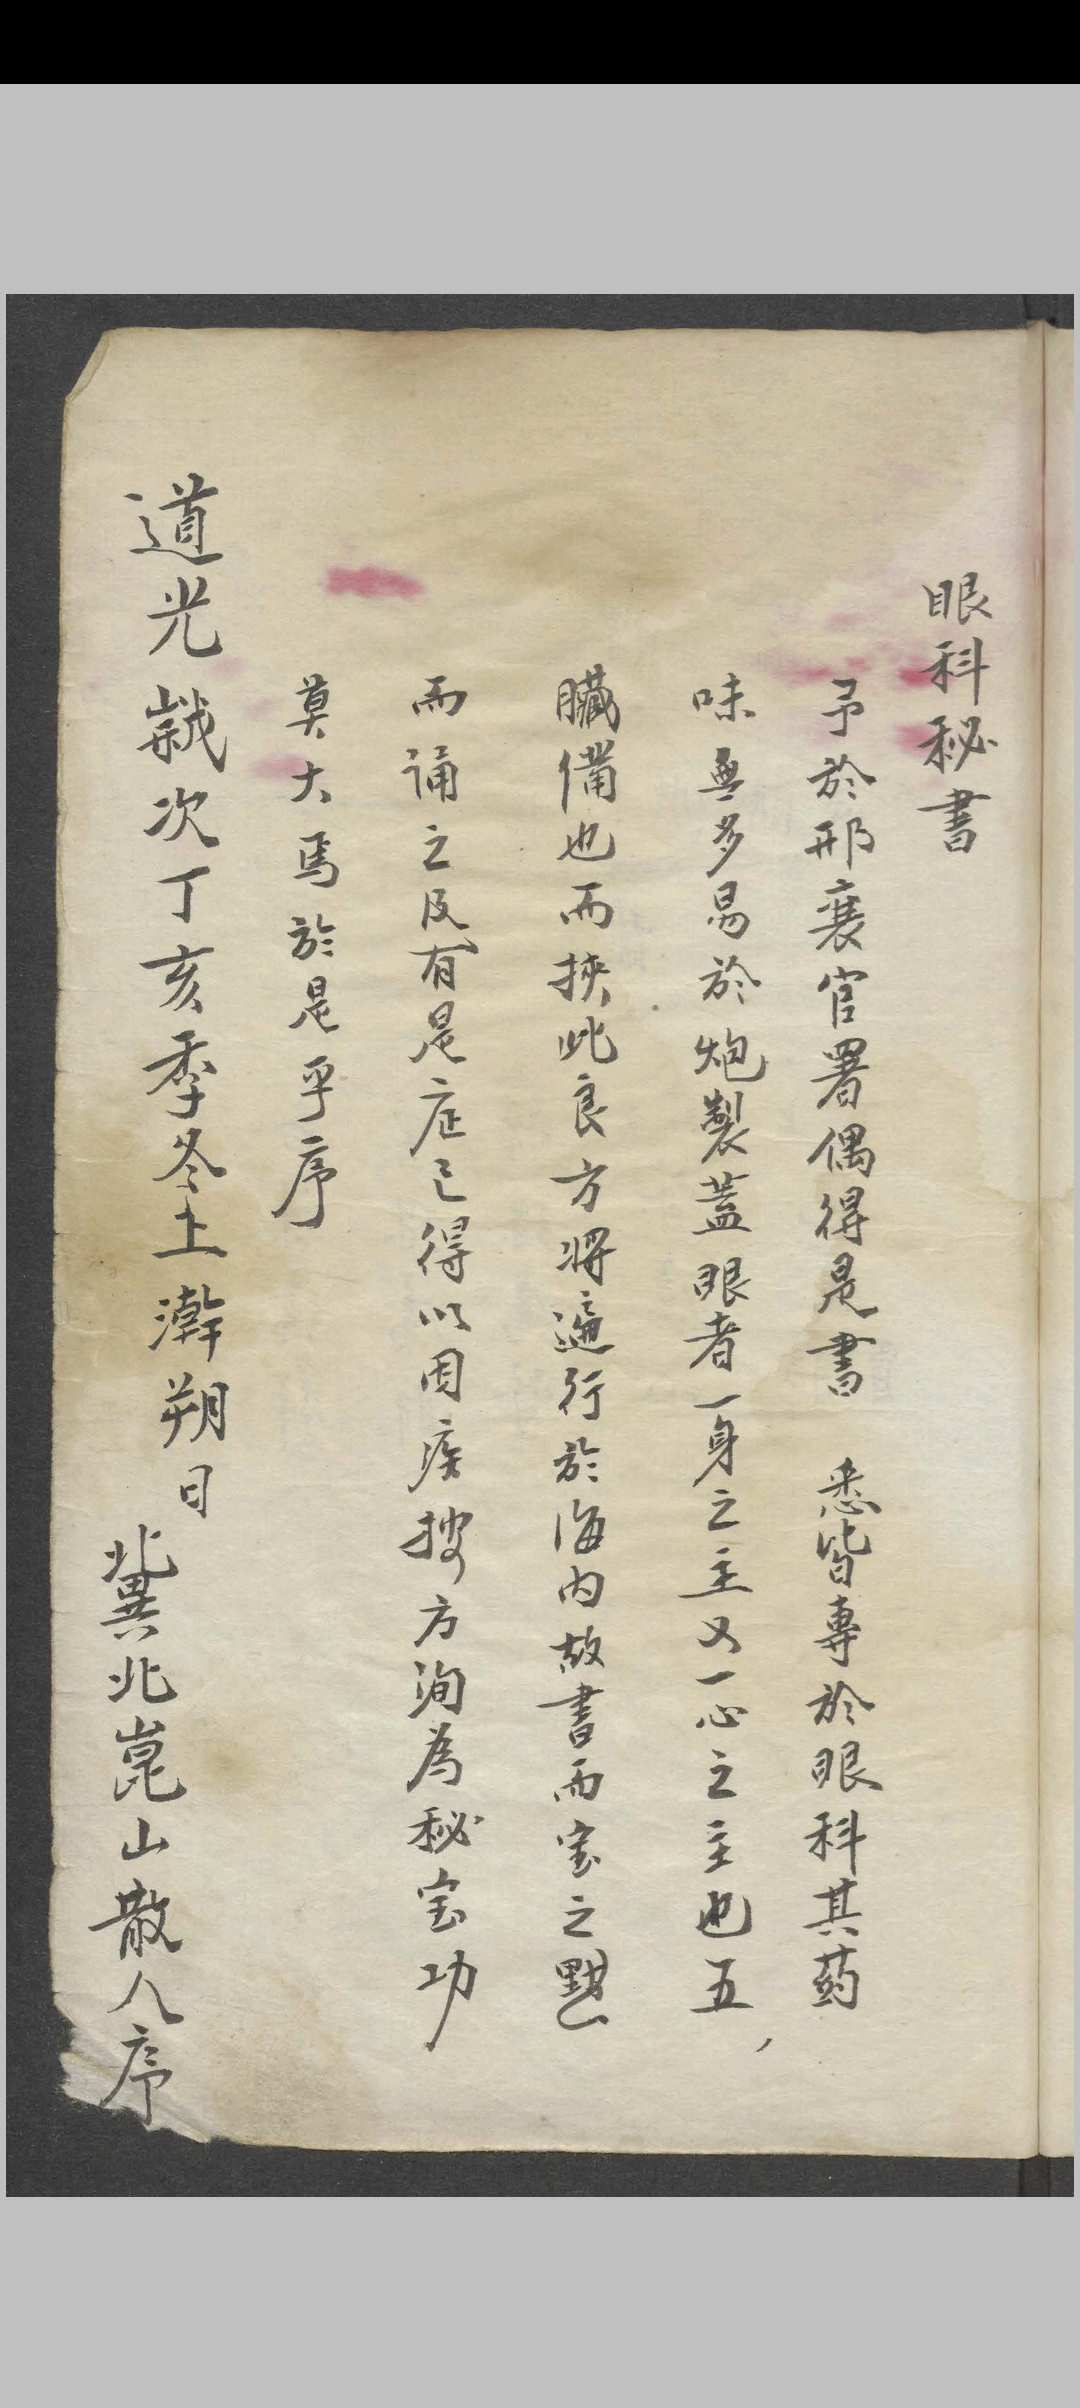 眼科秘書
予於邢襄官署偶得是書 悉皆專於眼科其葯
味無多易於炮製蓋眼者一身之主又一心之主也五
臟備也而挾此良方將遍行於海內故書而宝之
而誦之及有是症已得以因疾按方洵為秘宝功
莫大焉於是乎序
道光歲次丁亥季冬上澣朔日
冀北崑山散人序